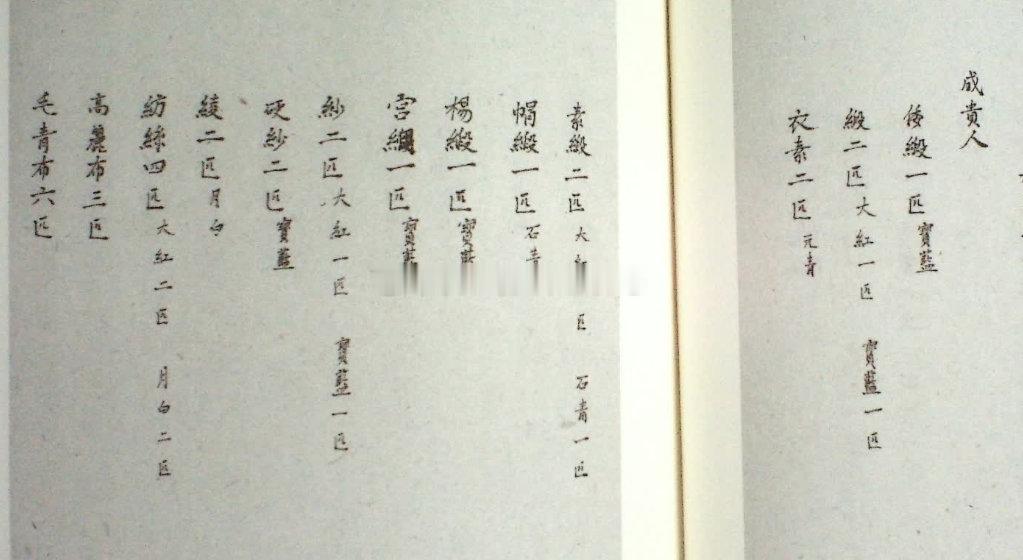 成貴人
倭緞一匹 寶藍
緞二匹 大紅一匹 寶藍一匹
衣素二匹 元青
素緞二匹 大 匹 石青一匹
帽緞一匹 石青
楊緞一匹 寶藍
宮紬一匹 寶藍
紗二匹 大紅一匹 寶藍一匹
硬紗二匹 寶藍
綾二匹 月白
紡絲四匹 大紅二匹 月白二匹
高麗布三匹
毛青布六匹